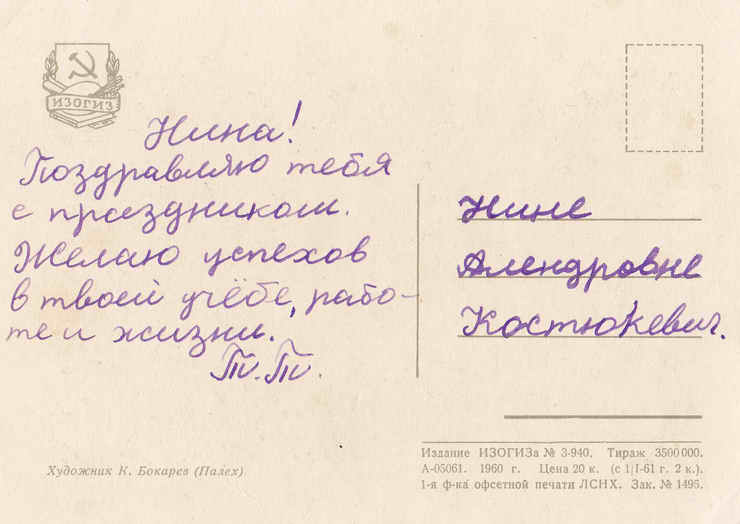 ИЗОГИЗ
Нина!
Поздравляю тебя
с праздником.
Желаю успехов
в твоей учёбе, рабо-
те и жизни.
Т.Т.
Нине
Алендровне
Костюкевич.
Художник К. Бокарев (Палех)
Издание ИЗОГИЗа № 3-940. Тираж 3500000.
А-05061. 1960 г. Цена 20 к. (с 1|I-61 г. 2 к.).
1-я ф-ка офсетной печати ЛСНХ. Зак. № 1495.